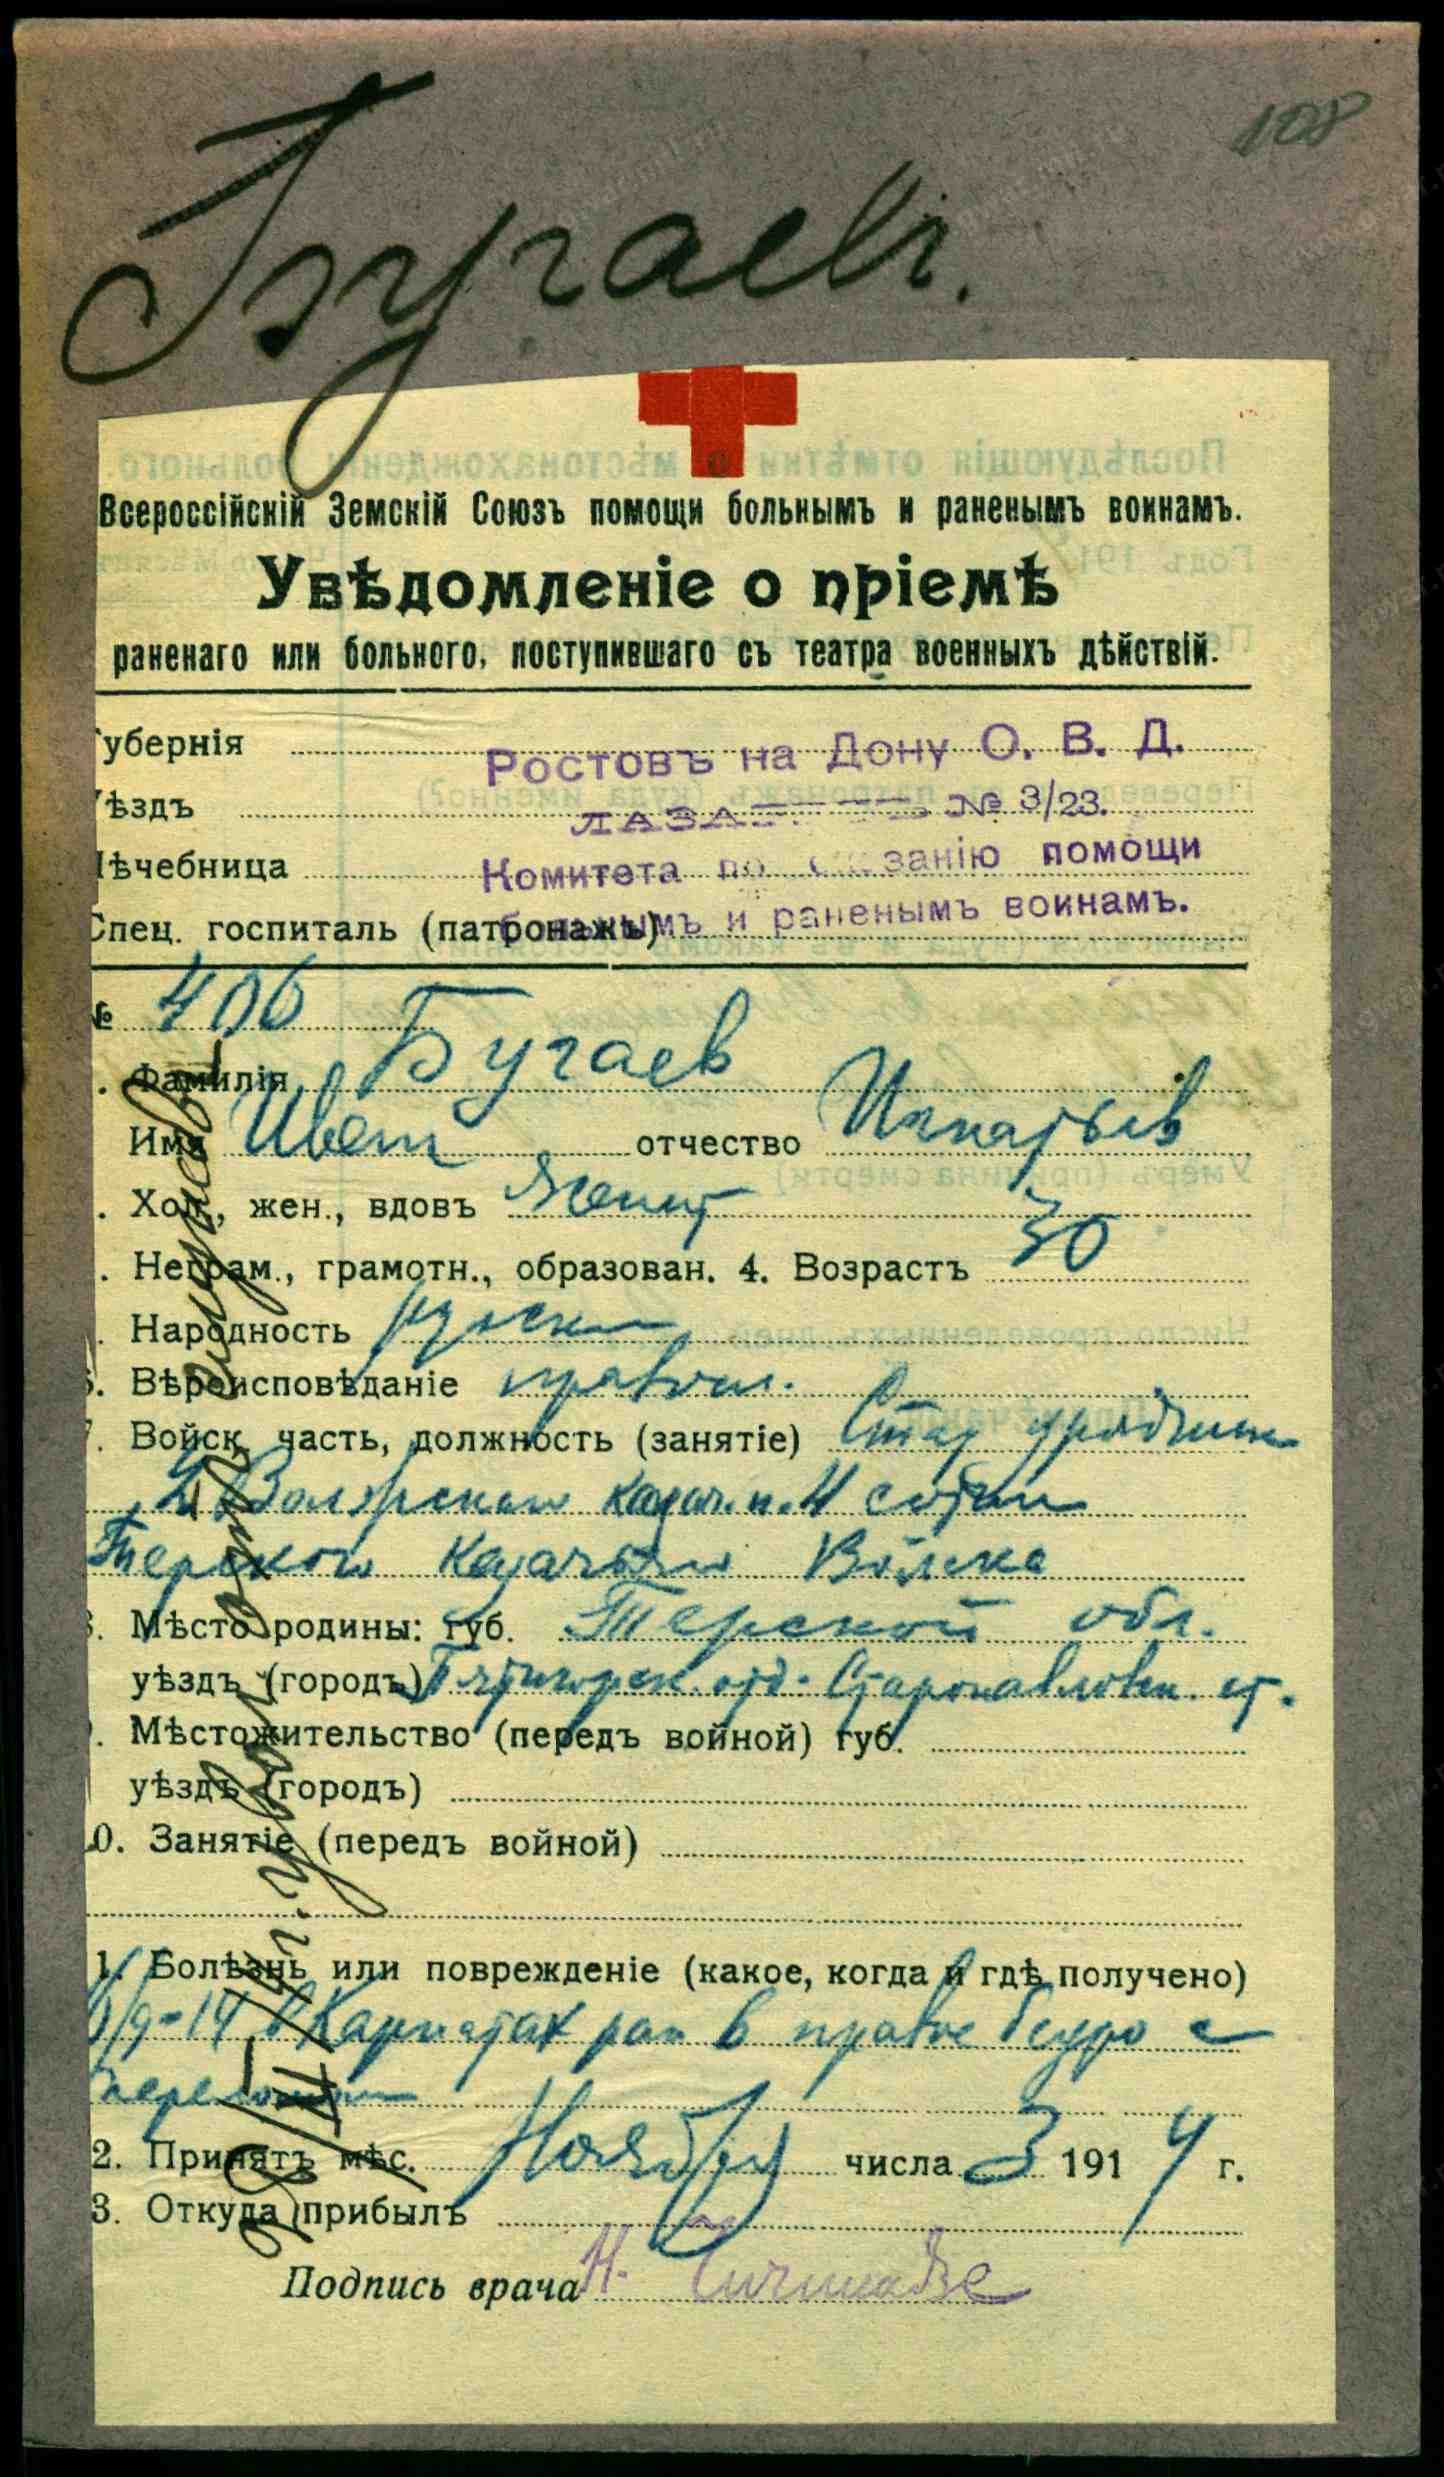 108
Бугаевъ.
Всероссійскій Земскій Союзъ помощи больнымъ и раненымъ воинамъ.
Увѣдомленіе о пріемѣ
раненаго или больного, поступившаго съ театра военныхъ дѣйствій.
Губернія Ростовъ на Дону О. В. Д.
Уѣздъ № 3/23.
Лѣчебница Комитета по оказанію помощи
Спец. госпиталь (патронажъ) больнымъ и раненымъ воинамъ.
№ 406
Фамилія Бугаев
Имя Иван отчество Игнатьев
Хол., жен., вдовъ Женат
Неграм., грамотн., образован. 4. Возрастъ 30
Народность русск
6. Вѣроисповѣданіе правосл.
7. Войск. часть, должность (занятіе) Стар урядник
2 Волжскаго казач. п. 4 сотни
Терского Казачьяго Войска
8. Мѣсто родины: губ. Терской обл.
уѣздъ (городъ) Пятигорск. отд. Старопавловск. ст.
9. Мѣстожительство (передъ войной) губ.
уѣздъ (городъ)
10. Занятіе (передъ войной)
11. Болѣзнь или поврежденіе (какое, когда и гдѣ получено)
/9-14 в Карпатах ран в правое бедро с
переломом
12. Принятъ мѣс. Ноября числа 3 1914 г.
13. Откуда прибылъ
Подпись врача Н.